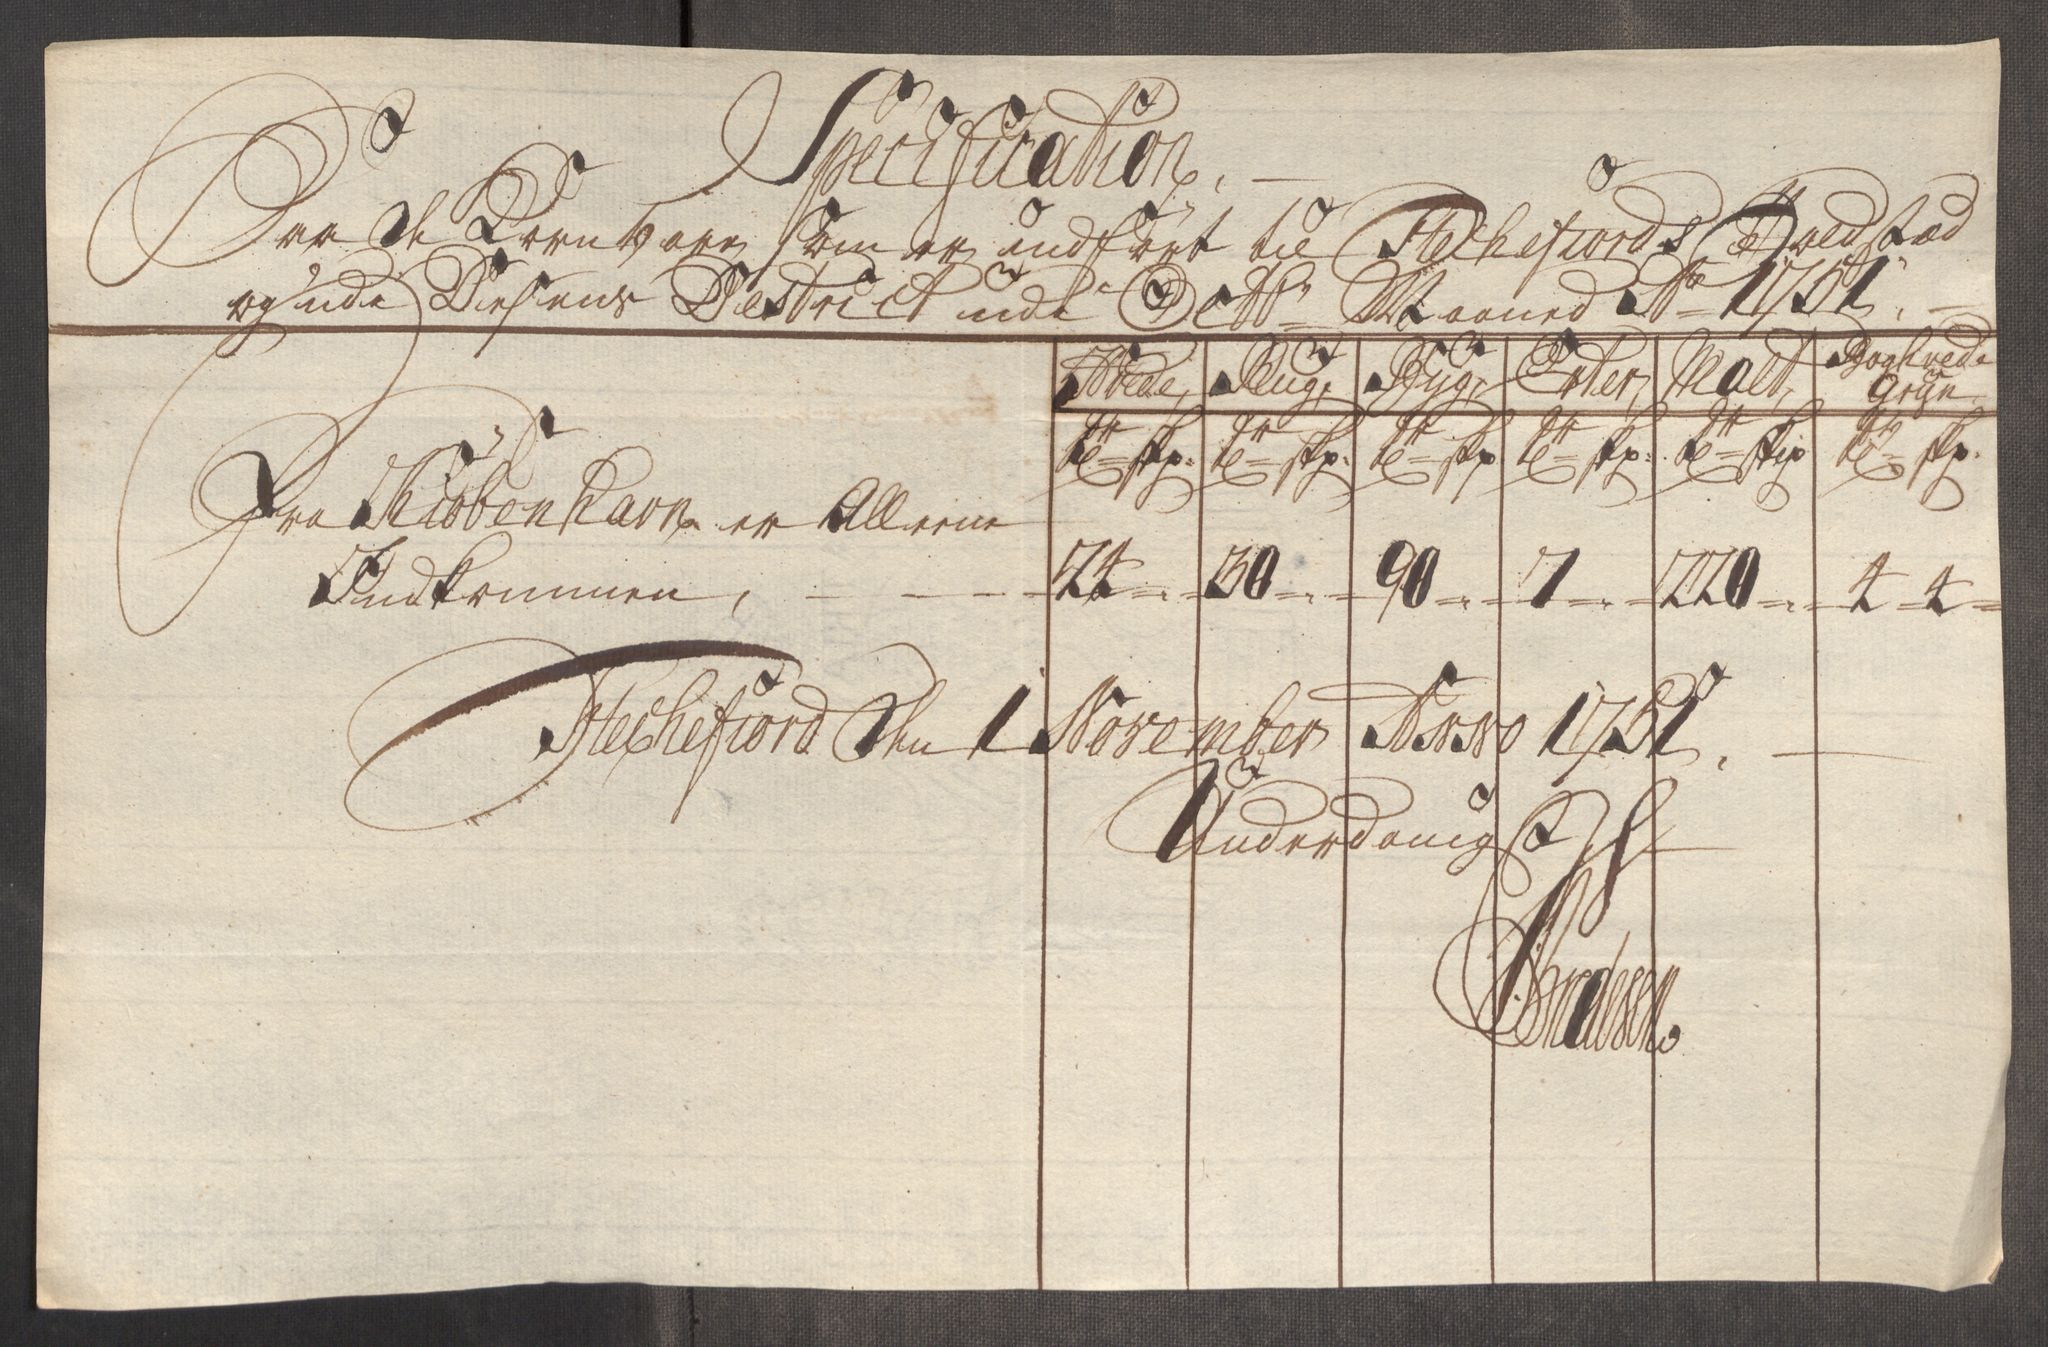 Specification
Paa de Kornvare som er indført til Flechefiords Toldstæd
og inde Dessens District udi Octbr Maaned Ao 1751.
Hvede, Rug, Byg, Erter, Malt, Boghvede
Gryn
tr skp: tr skp: tr skp tr skp: tr skip tr skp.
Fra Kiøbenhavn er Alleene
Indkommen, 24 30 90 7 220 4 4
Flechefiord Den 1 November Anno 1751.
Underdanigst